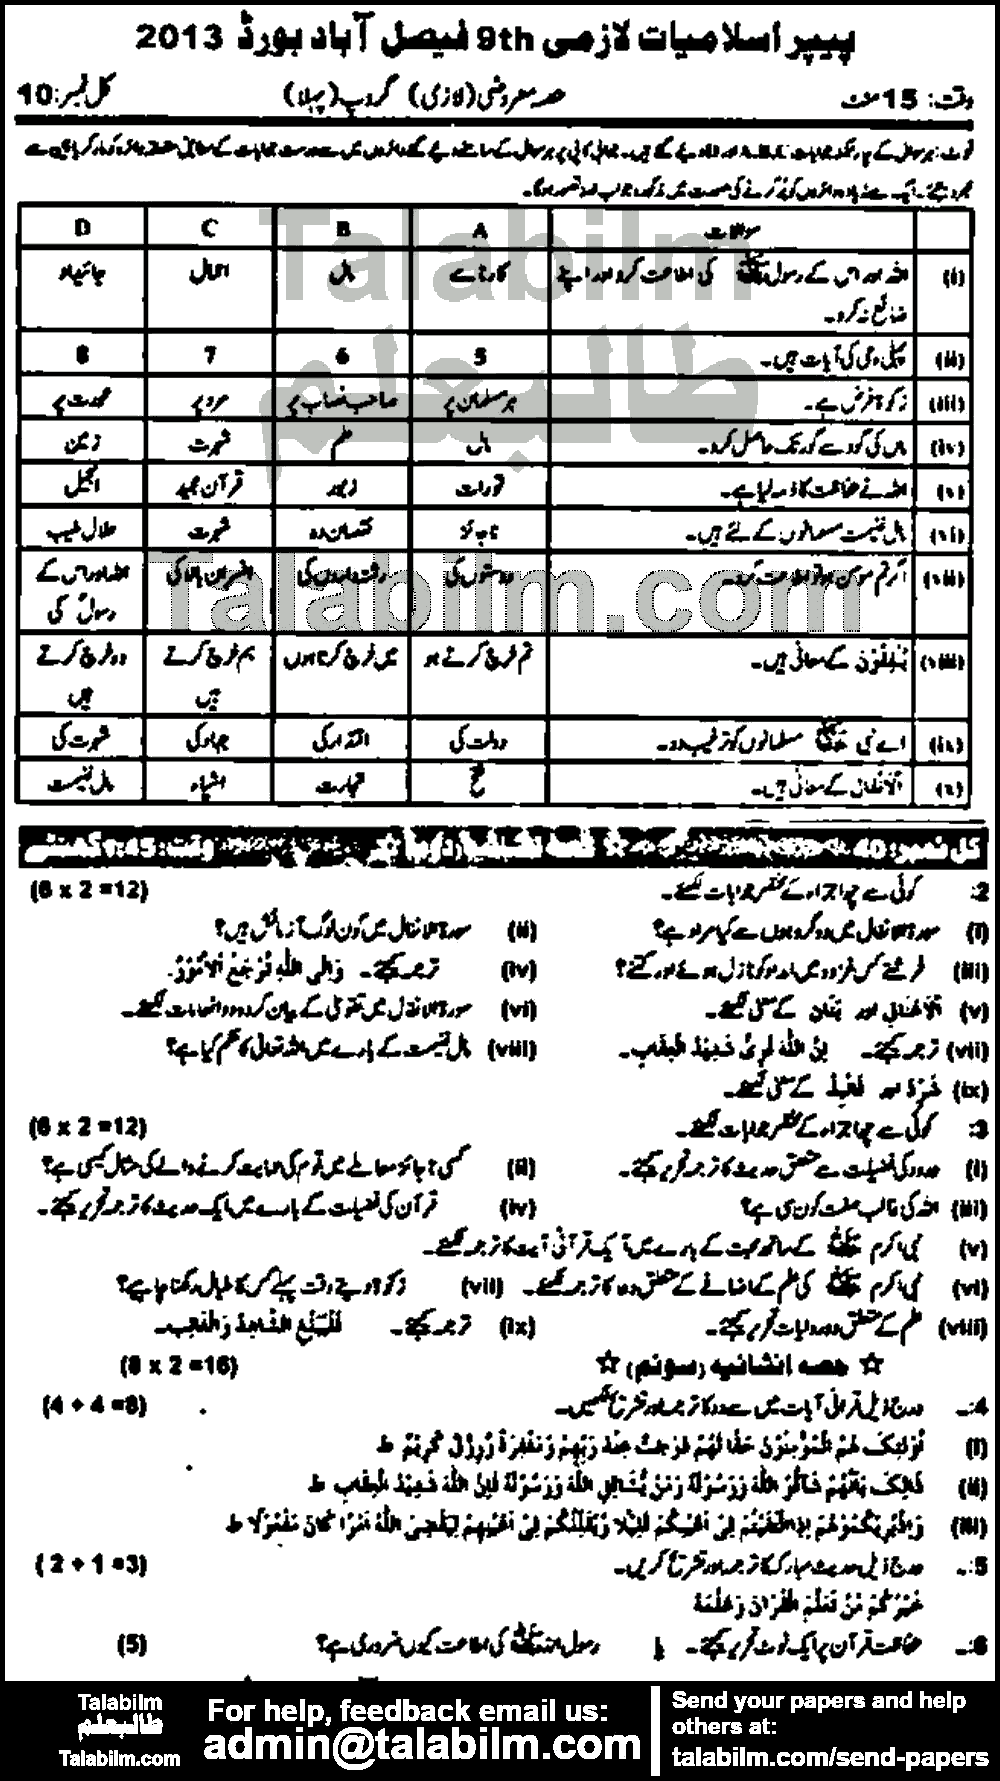 پیپر اسلامیات لازمی 9th فیصل آباد بورڈ 2013
وقت: 15 منٹ حصہ معروضی (لازمی) گروپ (پہلا) کل نمبر: 10
سوالات A B C D
(i) اللہ اور اس کے رسولﷺ کی اطاعت کرو اور اپنے ضائع نہ کرو۔ کارنامے مال اعمال جائیداد
(ii) پہلی وحی کی آیات ہیں۔ 5 6 7 8
(iii) زکوٰۃ فرض ہے۔ ہر مسلمان پر صاحب نصاب پر مرد پر عورت پر
(iv) ماں کی گود سے گور تک حاصل کرو۔ مال علم شہرت زمین
(v) اللہ نے حفاظت کا ذمہ لیا ہے۔ تورات زبور قرآن مجید انجیل
(vi) مال غنیمت مسلمانوں کے لئے ہیں۔ ناجائز نقصان دہ شہرت حلال طیب
(vii) اگر تم مومن ہو تو اطاعت کرو۔ دوستوں کی رشتہ داروں کی افسران بالا کی اللہ اور اس کے رسولؐ کی
(viii) يُنْفِقُوْنَ کے معانی ہیں۔ تم خرچ کرتے ہو میں خرچ کرتا ہوں ہم خرچ کرتے ہیں وہ خرچ کرتے ہیں
(ix) اے نبی ﷺ مسلمانوں کو ترغیب دو۔ دولت کی اقتدار کی جہاد کی شہرت کی
(x) اَلْاَنْفَالِ کے معانی ہیں۔ فتح تجارت اشیاء مال غنیمت
Talabilm
طالبعلم
Talabilm.com
کل نمبر: 40 ☆ حصہ انشائیہ (دوم) ☆ وقت: 1:45 گھنٹے
2: کوئی سے چھ اجزاء کے مختصر جوابات لکھئے۔ (6 x 2 =12)
(i) سورۃ الانفال میں دو گروہوں سے کیا مراد ہے؟ (ii) سورۃ الانفال میں کون لوگ آزمائش ہیں؟
(iii) فرشتے کس غزوہ میں امداد کو نازل ہوئے اور کتنے؟ (iv) ترجمہ کیجئے۔ وَاِلَى اللّٰهِ تُرْجَعُ الْاُمُوْرُ۔
(v) اَلْاَعْنَاقِ اور بَنَانٍ کے معنی لکھئے۔ (vi) سورۃ الانفال میں تقویٰ کے بیان کردہ دو انعامات لکھئے۔
(vii) ترجمہ کیجئے۔ اِنَّ اللّٰهَ قَوِيٌّ شَدِيْدُ الْعِقَابِ۔ (viii) مال غنیمت کے بارے میں اللہ تعالیٰ کا حکم کیا ہے؟
(ix) اور کے معنی لکھئے۔
3: کوئی سے چھ اجزاء کے مختصر جوابات لکھئے۔ (6 x 2 =12)
(i) درود کی فضیلت سے متعلق حدیث کا ترجمہ تحریر کیجئے۔ (ii) کسی ناجائز معاملے میں قوم کی حمایت کرنے والے کی مثال کیسی ہے؟
(iii) اللہ کی غالب صفت کون سی ہے؟ (iv) قرآن کی فضیلت کے بارے میں ایک حدیث کا ترجمہ تحریر کیجئے۔
(v) نبی اکرم ﷺ کے ساتھ محبت کے بارے میں ایک قرآنی آیت کا ترجمہ لکھئے۔
(vi) نبی اکرم ﷺ کی علم کے اضافے کے متعلق دعا کا ترجمہ لکھئے۔ (vii) زکوٰۃ دیتے وقت پہلے کس کا خیال رکھنا چاہیے؟
(viii) علم کے متعلق دو روایات تحریر کیجئے۔ (ix) ترجمہ کیجئے۔ فَلْيُبَلِّغِ الشَّاهِدُ الْغَائِبَ۔
☆ حصہ انشائیہ (سوئم) ☆ (8 x 2 =16)
4:۔ درج ذیل قرآنی آیات میں سے دو کا ترجمہ اور تشریح لکھیں۔ (4 + 4 =8)
(i) اُولٰٓئِكَ هُمُ الْمُؤْمِنُوْنَ حَقًّا لَهُمْ دَرَجٰتٌ عِنْدَ رَبِّهِمْ وَمَغْفِرَةٌ وَّرِزْقٌ كَرِيْمٌ ط
(ii) ذٰلِكَ بِاَنَّهُمْ شَآقُّوا اللّٰهَ وَرَسُوْلَهٗ وَمَنْ يُّشَاقِقِ اللّٰهَ وَرَسُوْلَهٗ فَاِنَّ اللّٰهَ شَدِيْدُ الْعِقَابِ ط
(iii) وَاِذْ يُرِيْكُمُوْهُمْ اِذِ الْتَقَيْتُمْ فِيْ اَعْيُنِكُمْ قَلِيْلًا وَّيُقَلِّلُكُمْ فِيْ اَعْيُنِهِمْ لِيَقْضِيَ اللّٰهُ اَمْرًا كَانَ مَفْعُوْلًا ط
5:۔ درج ذیل حدیث مبارکہ کا ترجمہ اور تشریح کریں۔ (2 + 1 =3)
خَيْرُكُمْ مَّنْ تَعَلَّمَ الْقُرْاٰنَ وَعَلَّمَهٗ
6:۔ حفاظت قرآن پر ایک نوٹ تحریر کیجئے۔ یا رسول اللہﷺ کی اطاعت کیوں ضروری ہے؟ (5)
Talabilm
طالبعلم
Talabilm.com
For help, feedback email us:
admin@talabilm.com
Send your papers and help
others at:
talabilm.com/send-papers